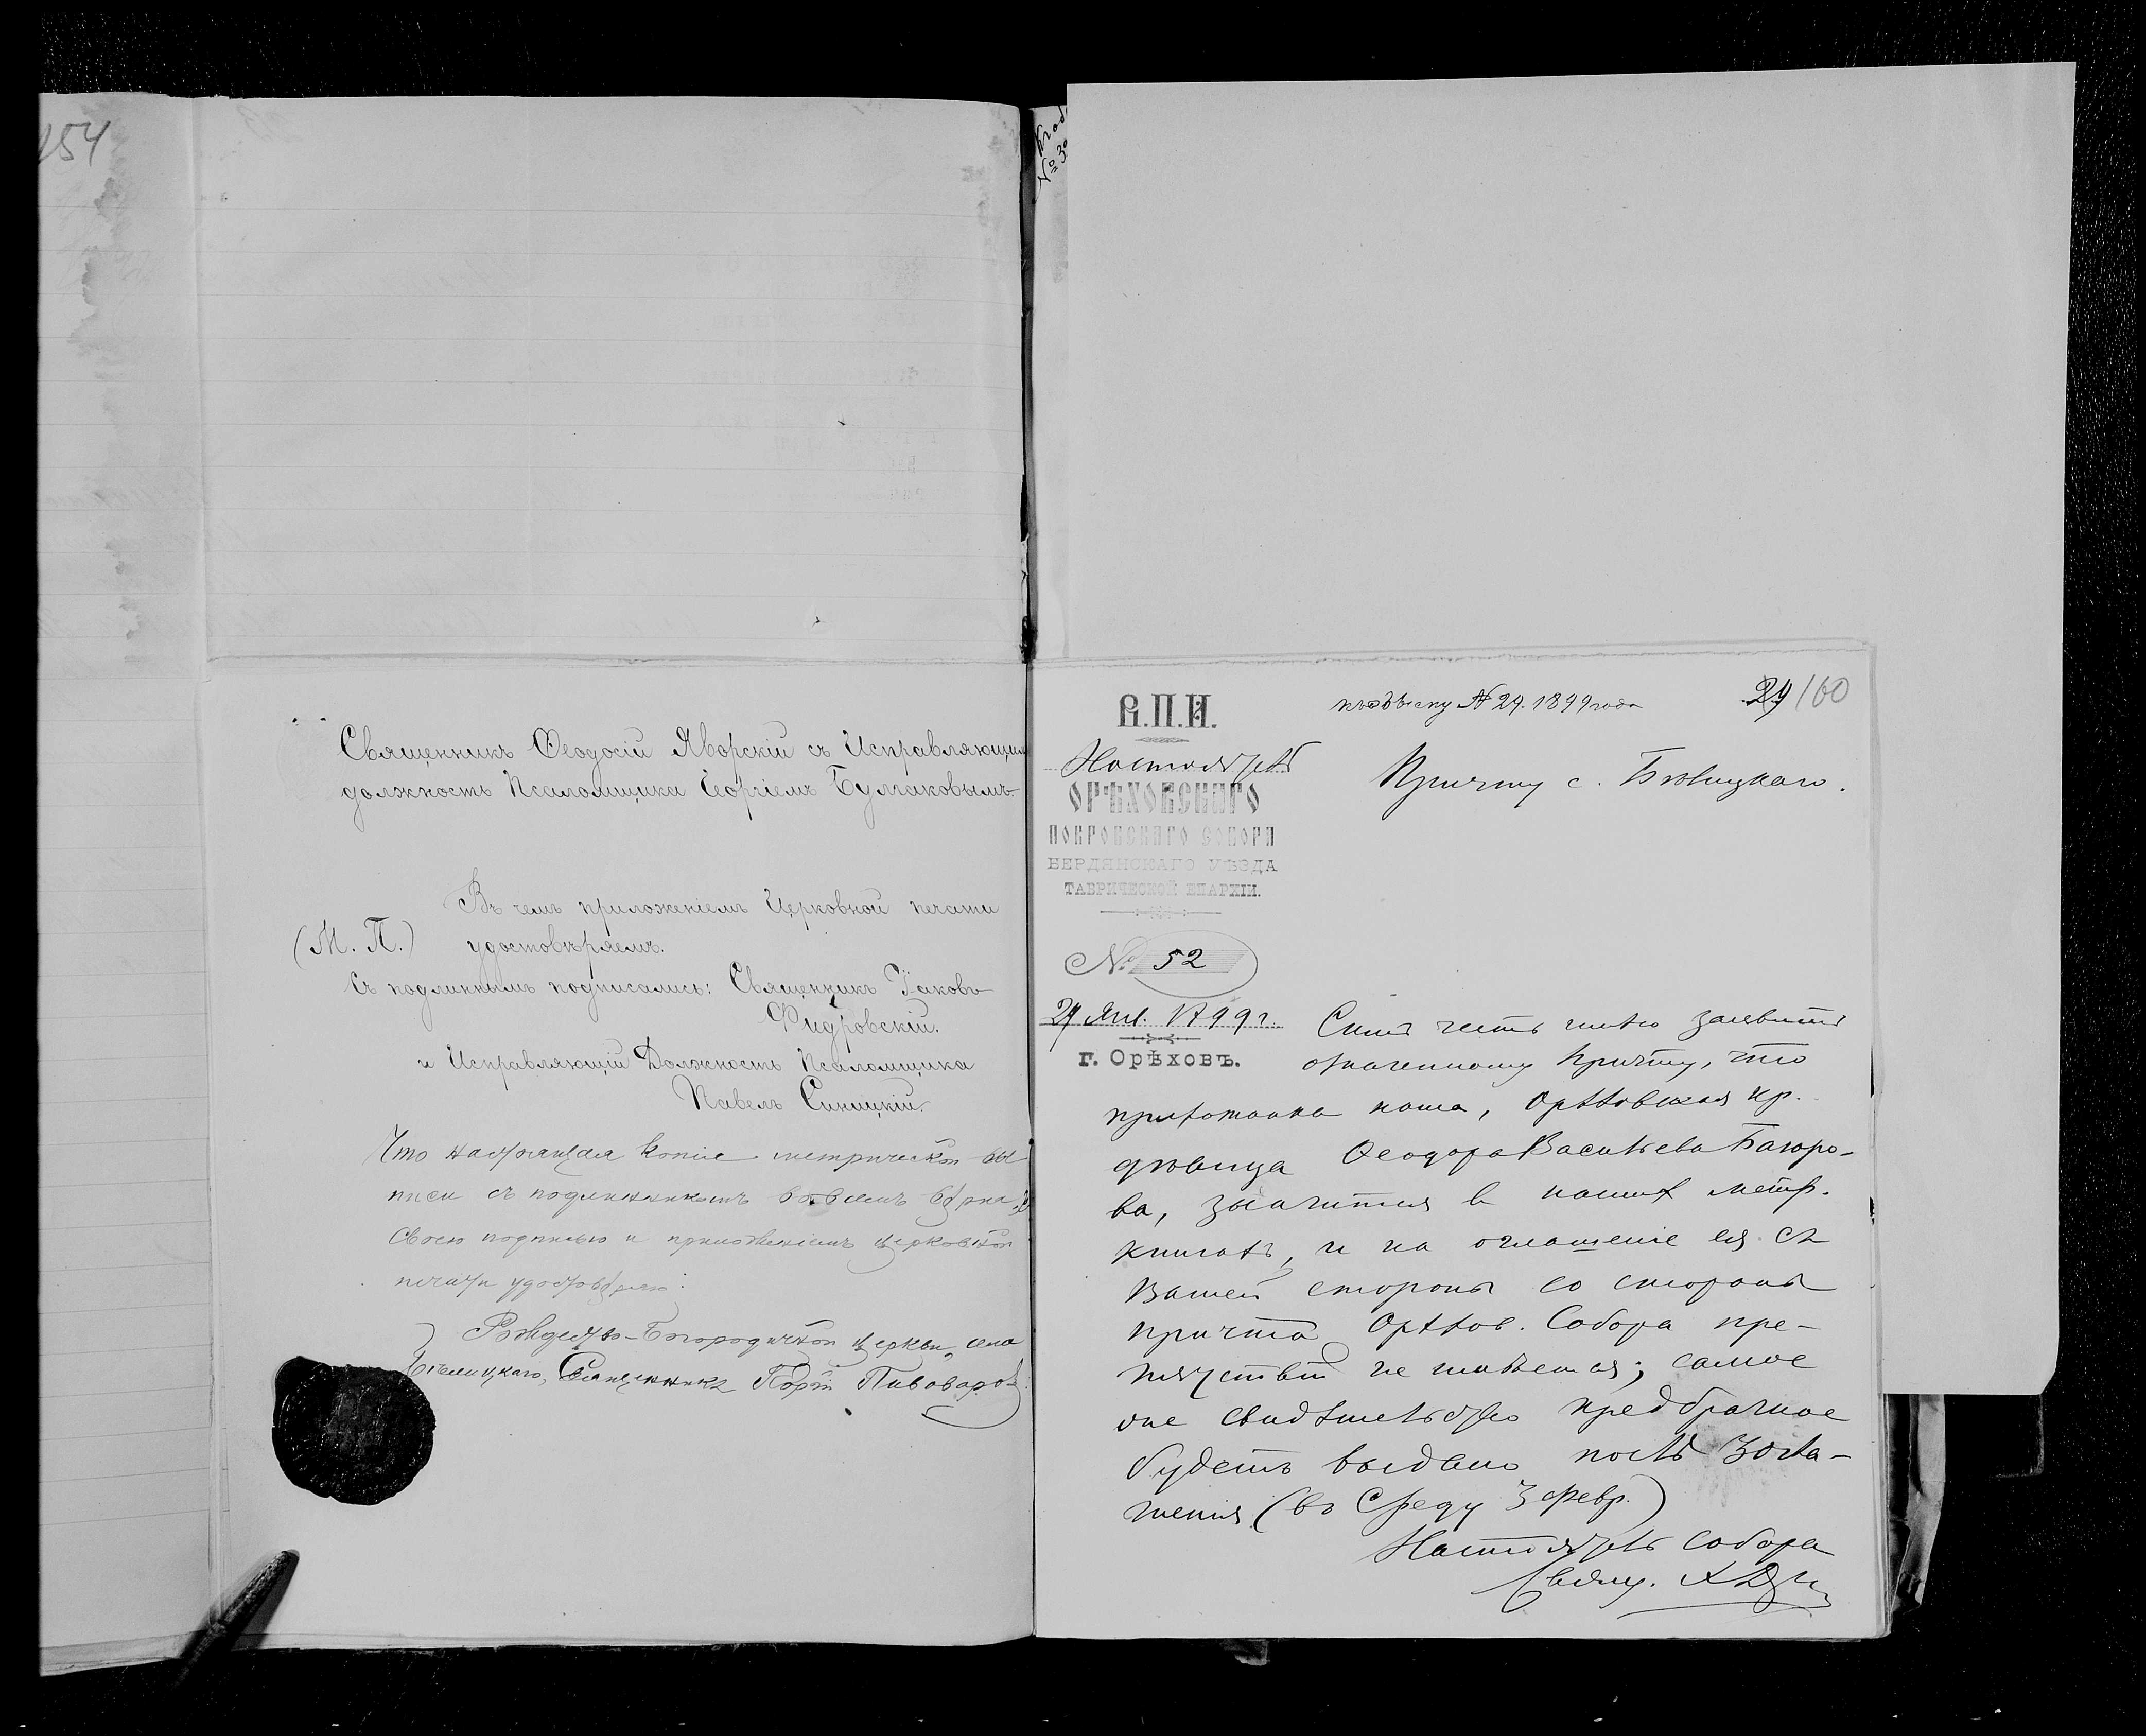 154
Священникъ Ѳеодосій Яворскій съ Исправляющим
должность Псаломщика Георгіемъ Булгаковымъ.
Въ чемъ приложеніемъ Церковной печати
(М. П.) удостовѣряемъ.
Съ подлиннымъ подписались: Священникъ Іаковъ
Фидровскій.
и Исправляющій Должность Псаломщика
Павелъ Синицкій.
Что настоящая копія метрической вы
писи съ подлинникомъ во всемъ вѣрна,
своею подписью и приложеніемъ церковной
печати удостовѣряю:
Рождество-Богородичной церкви, села
Бѣлицкаго, Священникъ Пивоваров
№ 3
В.П.И.
Настоятель
ОРѢХОВСКАГО
ПОКРОВСКАГО СОБОРА
БЕРДЯНСКАГО УѢЗДА
ТАВРИЧЕСКОЙ ЕПАРХІИ.
№ 52
29 Янв. 1899 г.
г. Орѣховъ.
къ обыску № 29. 1899 года
29/60
Причту с. Бѣлицкаго.
Симъ честь имѣю заявить
означенному Причту, что
прихожанка наша, Орѣховская кр.
дѣвица Ѳеодора Васильева Багоро-
ва, значится в нашихъ метр.
книгахъ, и на оглашеніе ея съ
Вашей стороны со стороны
причта Орѣхов. Собора пре-
пятствій не имѣется; самое
оне свидѣтельство предбрачное
будетъ выдано послѣ 3 огла-
шенія (въ Среду 3 февр.)
Настоятель собора
Свящ.